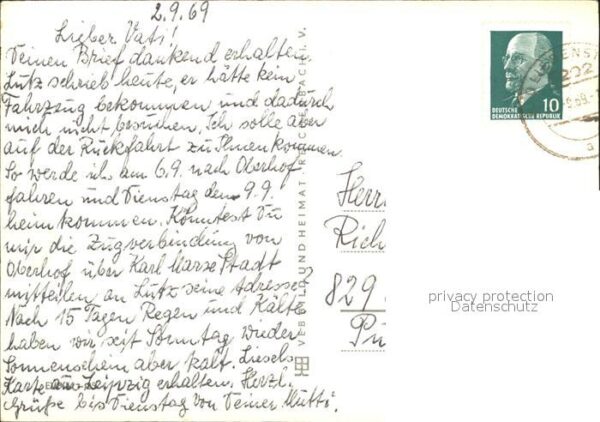 2.9.69
Lieber Vati!
Deinen Brief dankend erhalten.
Lutz schrieb heute, er hätte kein
Fahrzeug bekommen und dadurch
mich nicht besuchen. Ich solle aber
auf der Rückfahrt zu Ihnen kommen.
So werde ich am 6.9. nach Oberhof
fahren und Dienstag den 9.9.
heimkommen. Könntest Du
mir die Zugverbindung von
Oberhof über Karl Marx Stadt
mitteilen an Lutz seine Adresse?
Nach 15 Tagen Regen und Kälte
haben wir seit Sonntag wieder
Sonnenschein aber kalt. Liesels
Karte aus Leipzig erhalten. Herzl.
Grüße bis Dienstag von Deiner Mutti.
VEB BILD UND HEIMAT REICHENBACH I. V.
10
DEUTSCHE
DEMOKRATISCHE REPUBLIK
Herrn
Rich
829
privacy protection
Datenschutz